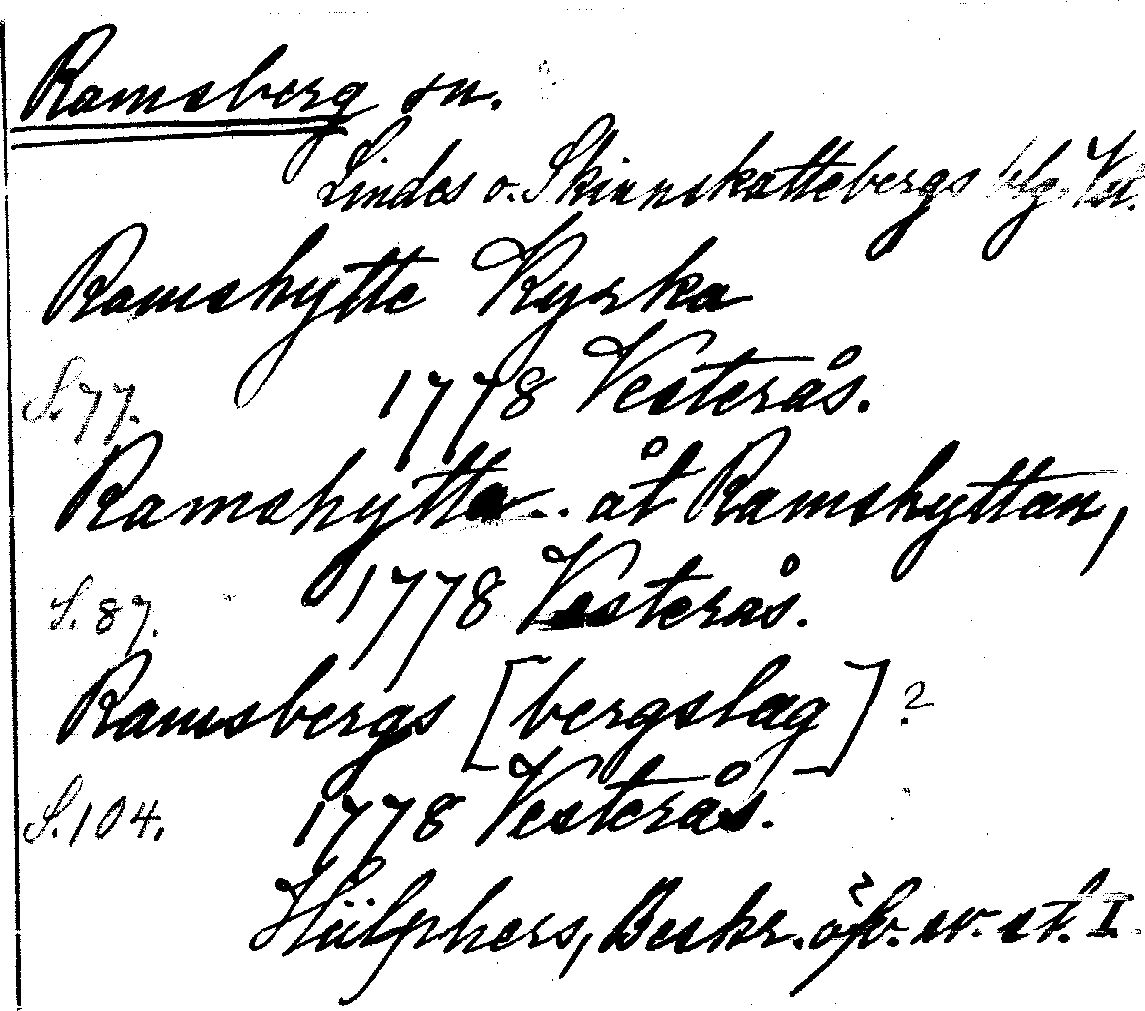 Ramsberg sn.
Lindes o. Skinnskattebergs blg. Vsl.
Ramshytte Kyrka
S. 77. 1778 Vesterås.
Ramshytta .. åt Ramshyttan,
S. 87. 1778 Vesterås.
Ramsbergs [bergslag] ?
S. 104. 1778 Vesterås.
Hülphers, Beskr. öfv. sv. st. I.